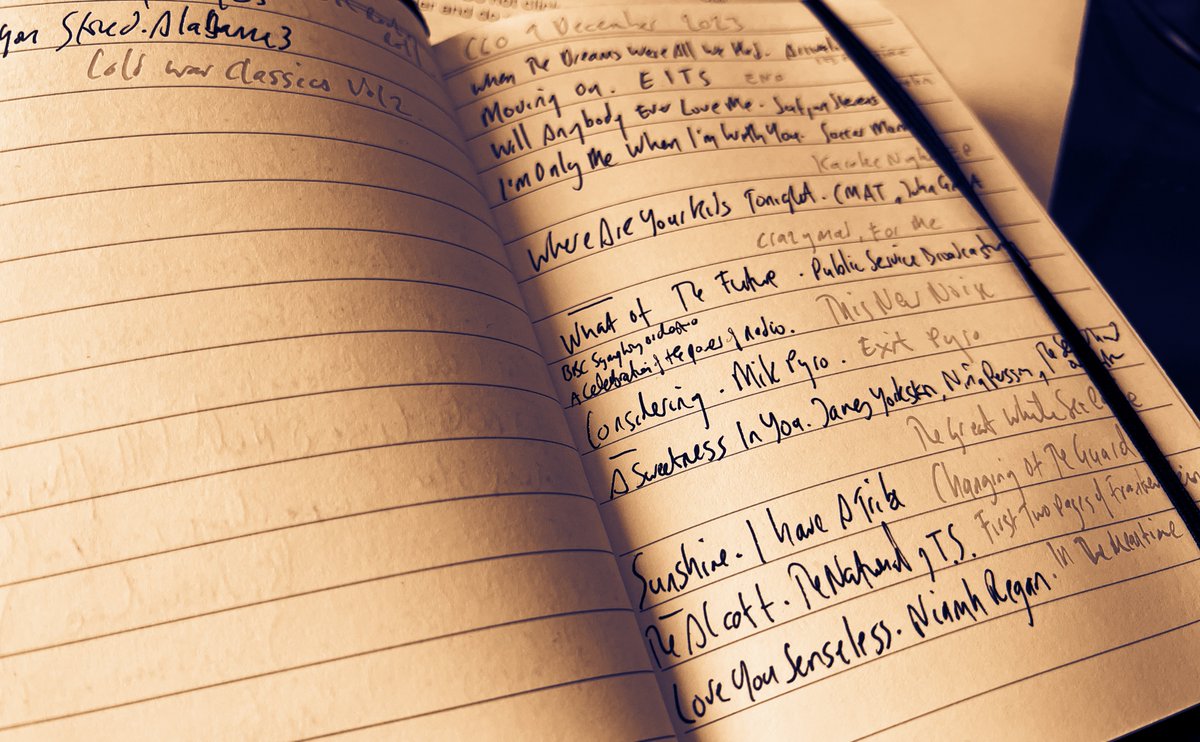 Stered. Alabama3
Cold war Classics Vol2
CCO 9 December 2023
When The Dreams Were All
Moving On. EITS END
Will Anybody Ever Love Me. Sufjan Stevens
I'm Only Me When I'm With You. Soccer Mommy
Karaoke Night
Where Are Your Kids Tonight. CMAT, John Grant
Crazymad, For Me
What of The Future. Public Service Broadcasting
BBC Symphony orchestra
A Celebration of the power of radio. This New Noise
Considering. Mik Pyro. Exit Pyro
A Sweetness In You. James Yorkston, Nina Persson, The Second Hand
The Great White Sea Eagle
Sunshine. I Have A Tribe Changing of The Guard
The Alcott. The National, T.S. First Two Pages of Frankenstein
Love You Senseless. Niamh Regan. In The Meantime